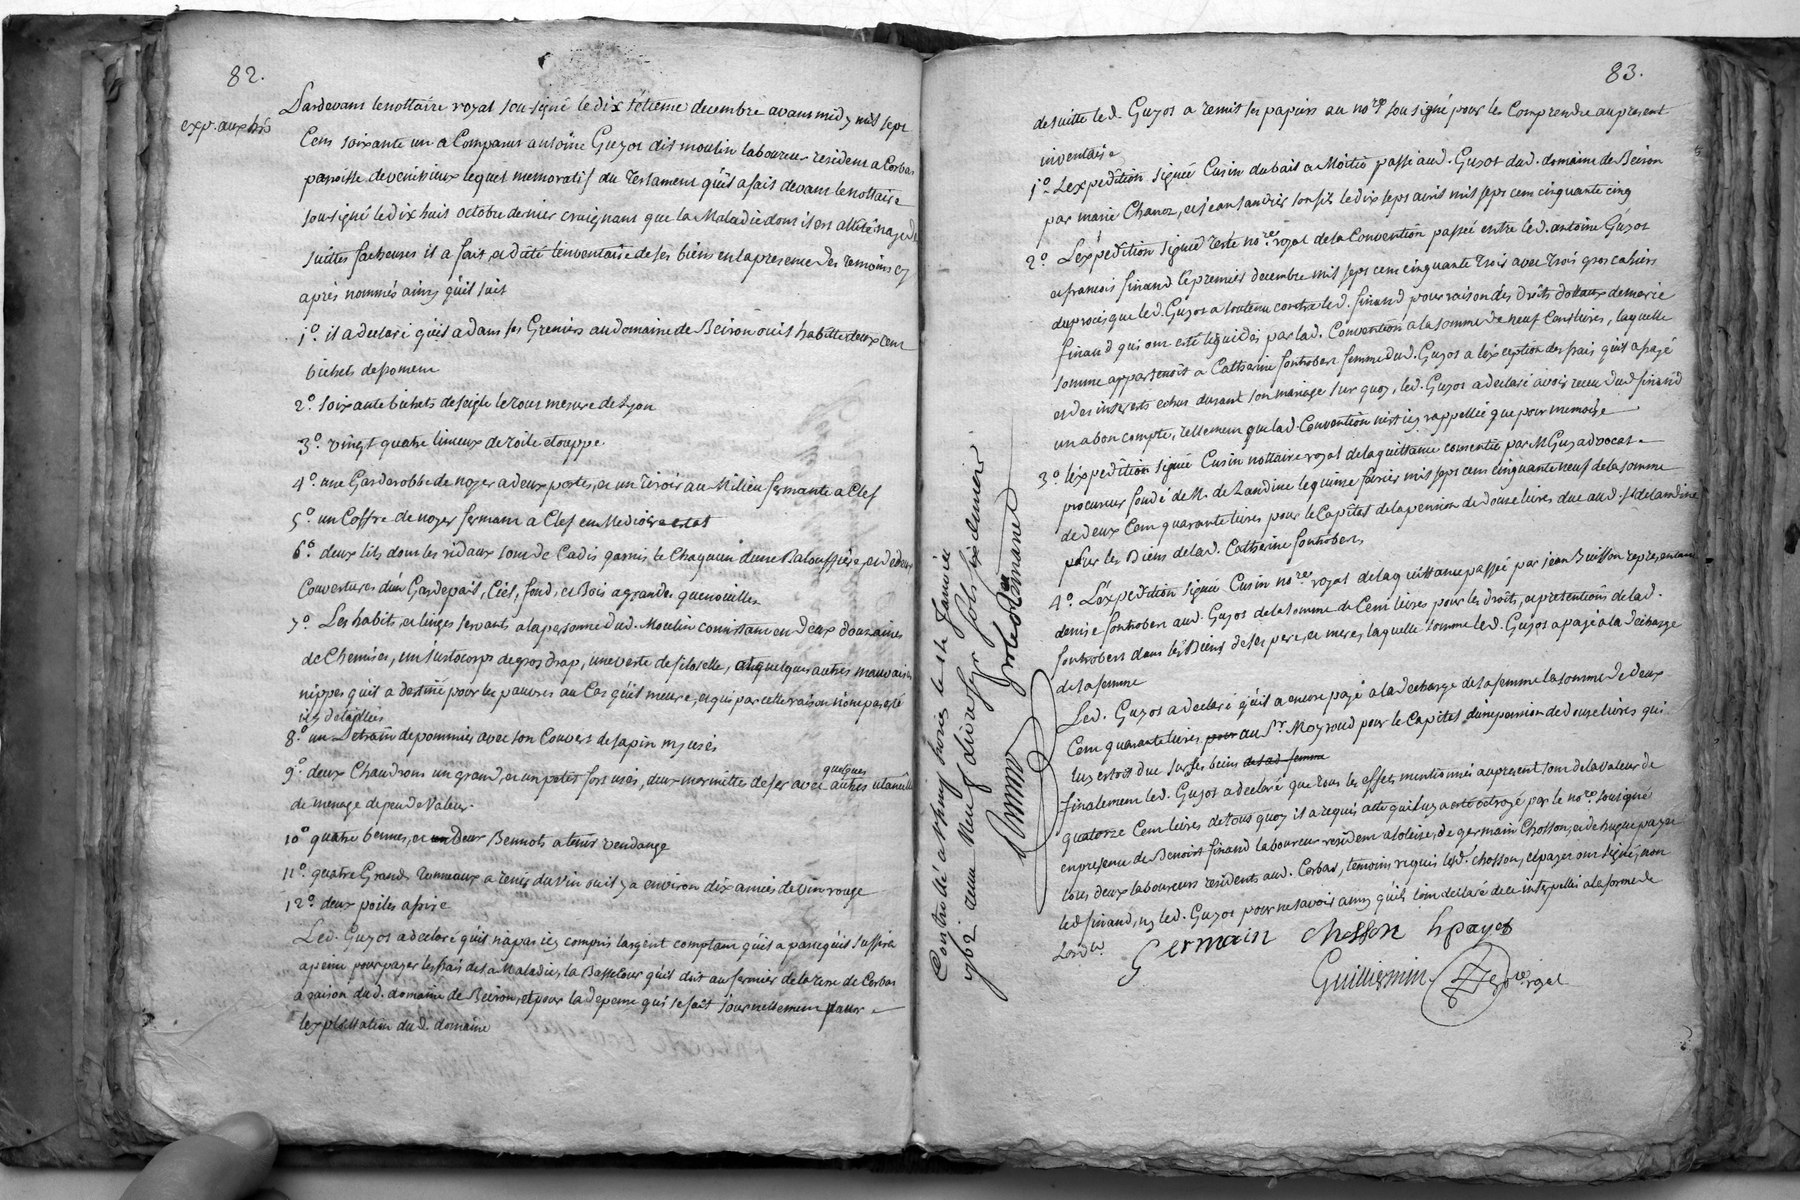 82.
exp. aux hrs
Pardevant le nottaire royal sousigné le dix sétieme decembre avant midy mil sept
Cent soixante un a Comparut antoine Guyot dit moulin laboureur resident a Corbas
parroisse de venissieux lequel memoratif du testament qu'il a fait devant le nottaire
sousigné le dix huit octobre dernier craignant que la Maladie dont il est attité n'aye de
suittes facheuses il a fait, a dâté l'inventaire de ses biens en la presence des temoins cy
après nommés ainsy qu'il suit
1.° il a declaré qu'il a dans ses Greniers au domaine de Beiron ou il habitte deux cent
bichets de froment
2.° soixante bichets de seigle le tout mesure de Lyon
3.° vingt quatre linceux de toile etouppe.
4.° une Garderobbe de noyer a deux portes, et un tiroir au Milieu fermante a Clef
5.° un Coffre de noyer fermant a Clef en Mediocre etat
6.° deux lits dont les ridaux sont de Cadis garnis le Chaqu'un d'une Balouffière, et de deux
Couvertures d'un Gardepail, Ciel, fond, et Bois a grandes quenouilles
7.° Les habits, et linges servants a la personne dud. Moulin consistant en deux douzaines
de Chemises, un Justocorps de gros drap, une veste de filoselle, et quelques autres mauvaises
nippes qu'il a destiné pour les pauvres au Cas qu'il meure, et qui par cette raison n'ont pas été
icy detaillées
8.° un Petrain de pommier avec son Couvert de sapin my usés
9.° deux Chaudrons un grand, et un petit fort usés, deux marmitte de fer avec quelques autres utansilles
de menage de peu de valeur.
10.° quatre bennes, et un Deux Bennots a tenir vendange
11.° quatre Grands Tonneaux a tenir du vin ou il y a environ dix anées de vin rouge
12.° deux poiles a frire
Led. Guyot a declaré qu'il n'a pas icy compris l'argent comptant qu'il a parcequ'il suffira
a peine pour payer les frais de sa Maladie, la Bassecour qu'il doit au fermier de la terre de Corbas
a raison dud. domaine de Beiron, et pour la depense qui se fait journellement pour
l'exploittation dud. domaine
Controllé a st phorien d'ozon le 2 janvier
1762 reçu Neuf livres dix sols six deniers
83.
de suitte led. Guyot a remit ses papiers au nore. sousigné pour les Comprendre au present
inventaire
1.° L'expedition signée Cusin du bail a Moitié passé aud. Guyot dud. domaine de Beiron
par marie Chanoz, et jean Janvier son fils le dix sept avril mil sept cent cinquante cinq
2.° L'expedition signée Teste nore. royal de la Convention passée entre led. antoine Guyot
et francois finand le premier decembre mil sept cent cinquante trois avec trois gros cahiers
du procès que led. Guyot a soutenu contre led. finand pour raison des droits dotaux de marie
finand qui ont eté liquidés par lad. Convention a la somme de neuf Cent livres, laquelle
somme appartenoit a Catherine fontrobert femme dud. Guyot a l'exception des frais qu'il a payé
et des interests echus durant son mariage sur quoy, led. Guyot a declaré avoir receu dud finand
un a bon compte, tellement que lad. Convention n'est icy rappellée que pour memoire
3.° l'expedition signée Cusin nottaire royal de la quittance consentie par M. Guy advocat
procureur fondé de M. de Landine le quinse fevrier mil sept cent cinquante neuf de la somme
de deux Cent quarante livres pour le Capital de la pension de douse livres due aud. sr. delandine
sur les Biens de lad. Catherine fontrobert
4.° L'expedition signée Cusin nore. royal de la quittance passée par jean Buisson representant
denise fontrobert aud. Guyot de la somme de Cent livres pour les droits, et pretentions de lad.
fontrobert dans les Biens de ses pere, et mere, laquelle somme led. Guyot a payé a la decharge
de sa femme
Led. Guyot a declaré qu'il a encore payé a la decharge de sa femme la somme de deux
Cent quarante livres pour au Sr. Moyroud pour le Capital d'une pension de douse livres qui
luy estoit due sur ses biens de sad. femme
finalement led. Guyot a declaré que tous les effets mentionnés au present sont de la valeur de
quatorze Cent livres de tous quoy il a requis acte qui luy a esté octroyé par le nore. sousigné
en presence de Benoist finand laboureur resident a toleise, de germain Chosson, et de hugue payet
tous deux laboureurs residents aud. Corbas, temoins requis lesd. chosson, et payet ont signé, non
led finand, ny led. Guyot pour ne savoir ainsy qu'ils l'ont declaré de ce interpellés a la forme de
l'ordce.
Germain chosson h payet
Guilliermin nore. royal